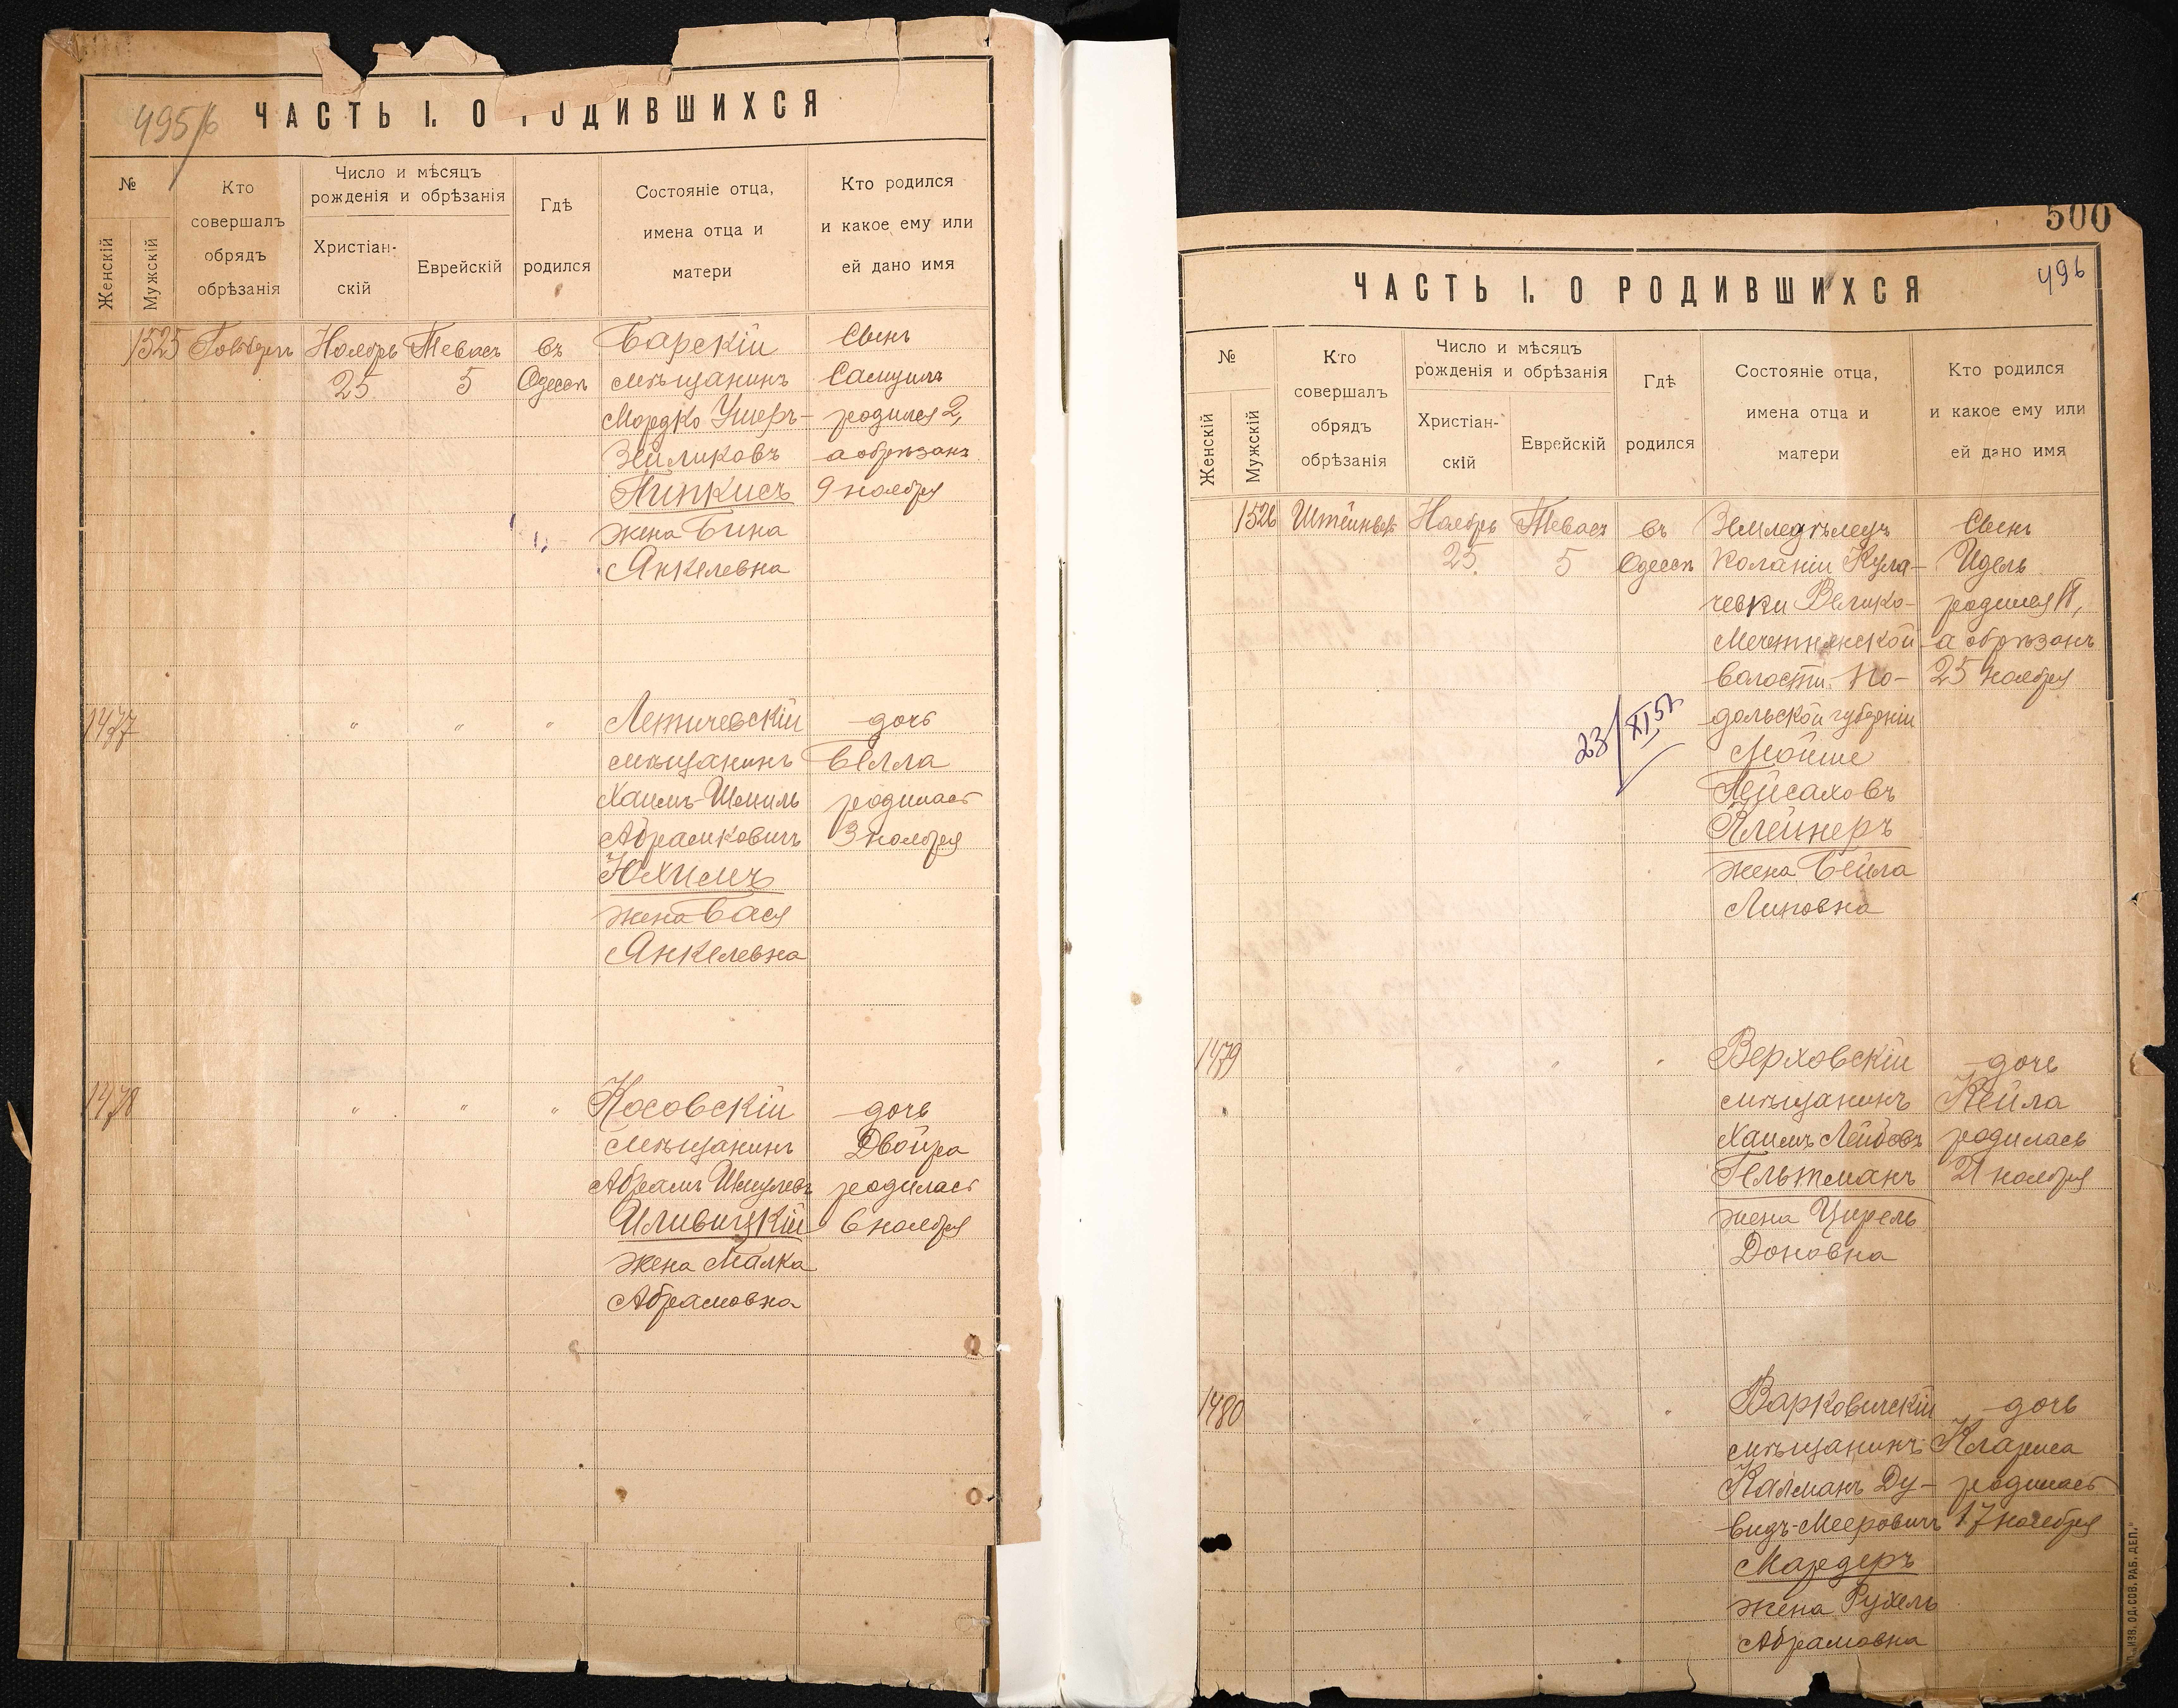 495/б
ЧАСТЬ I. О РОДИВШИХСЯ
№
Женскій
Мужскій
Кто
совершалъ
обрядъ
обрѣзанія
Число и мѣсяцъ
рожденія и обрѣзанія
Христіан-
скій
Еврейскій
Гдѣ
родился
Состояніе отца,
имена отца и
матери
Кто родился
и какое ему или
ей дано имя
1525 Ноябрь Тевасъ въ Барскій Сынъ
25 5 Одессѣ мѣщанинъ Самуилъ
Мордко Ушеръ- родился 2,
Зейликовъ а обрѣзанъ
Пинкисъ 9 ноября
жена Бина
Янкелевна
1477 " " " Летичевскій дочь
мѣщанинъ Белла
Хаимъ-Шмиль родилась
Абрамковичъ 3 ноября
Юхимъ
жена Бася
Янкелевна
1478 " " " Косовскій дочь
мѣщанинъ Двойра
Абрамъ Шмулевъ родилась
Иливицкій 6 ноября
жена Малка
Абрамовна
500
496
ЧАСТЬ I. О РОДИВШИХСЯ
№
Женскій
Мужскій
Кто
совершалъ
обрядъ
обрѣзанія
Число и мѣсяцъ
рожденія и обрѣзанія
Христіан-
скій
Еврейскій
Гдѣ
родился
Состояніе отца,
имена отца и
матери
Кто родился
и какое ему или
ей дано имя
1526 Ноябрь Тевасъ въ Земледѣлецъ Сынъ
25 5 Одессѣ колоніи Кула- Идель
чевки Велико- родился 18,
Мечетнянской а обрѣзанъ
волости По- 25 ноября
дольской губерніи
23/XI 51
Мойше
Пейсаховъ
Клейнеръ
жена Бейла
Липовна
1479 " " " Верховскій дочь
мѣщанинъ Кейла
Хаимъ Лейбовъ родилась
Гельтманъ 21 ноября
жена Цирель
Доновна
1480 " " " Варковичскій дочь
мѣщанинъ Клариса
Калманъ Ду- родилась
видъ-Мееровичъ 17 ноября
Мардеръ
жена Рухель
Абрамовна
ИЗВ. ОД. СОВ. РАБ. ДЕП."